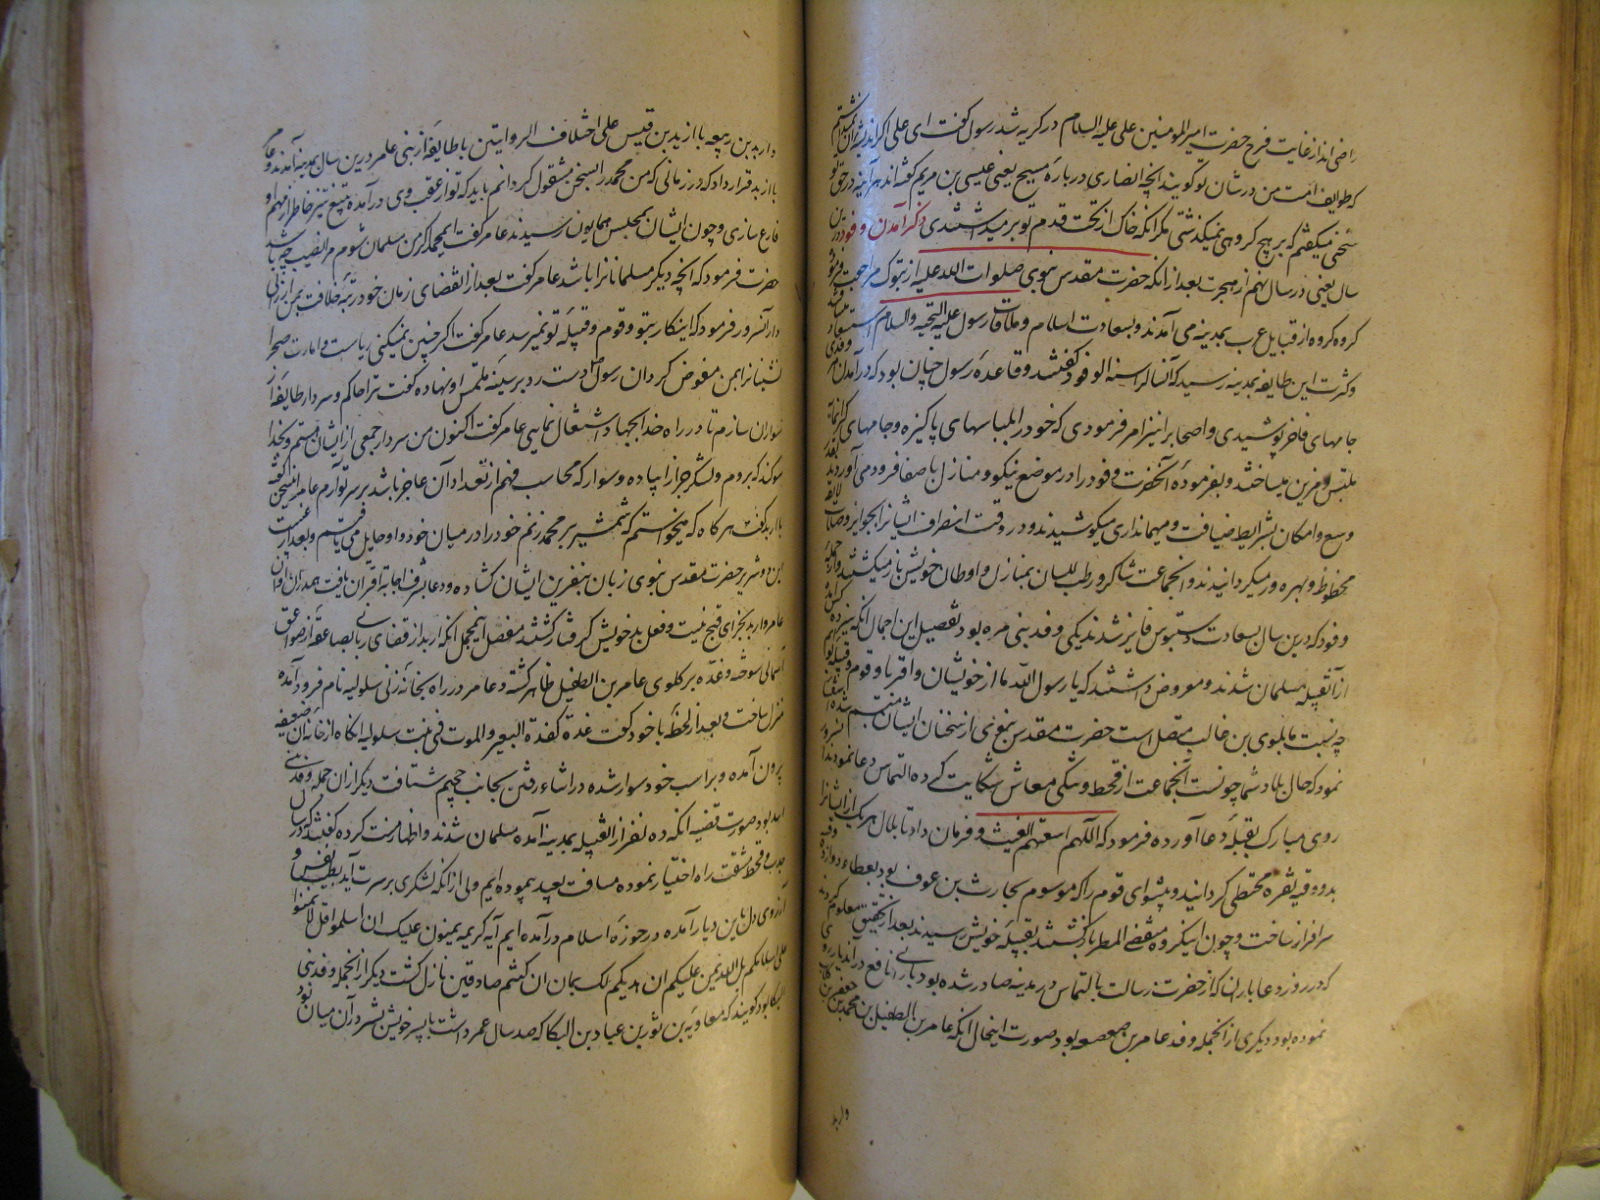 راضی اند از غایت فرح حضرت امیر المومنین علی علیه السلام در گریه شد رسول گفت ای علی اگر نه
که طوایف امت من در شان تو گویند انچه انصاری درباره مسیح یعنی عیسی بن مریم گفته اند هر آینه در حق تو
سخنی میگفتم که بر هیچ گروهی نمیگذشتی مگر انکه خاک از تحت قدم تو بر میداشتندی ذکر آمدن وفود درین
سال یعنی در سال نهم از هجرت بعد از انکه حضرت مقدس نبوی صلوات الله علیه از تبوک مراجعت فرمود
گروه گروه از قبایل عرب بمدینه می آمدند و بسعادت اسلام و ملاقات رسول علیه التحیه والسلام استسعاد
و کثرت این طایفه بمدینه رسید که آنسال را سنه الوفود گفتند و قاعده رسول چنان بود که در آمدن
جامهای فاخر پوشیدی و اصحاب را نیز امر فرمودی که خود را بلباسهای پاکیزه و جامهای
ملبس و مزین میساختند و بفرموده آنحضرت وفود را در موضع نیکو و منازل با صفا فرود می آوردند
وسع و امکان بشرایط ضیافت و میهمانداری میکوشیدند و در وقت انصراف ایشانرا بجوایز وصلات
محظوظ و بهره ور میگردانیدند و انجماعت شاکر و رطب اللسان بمنازل و اوطان خویش باز میگشتند
وفود که درین سال بسعادت دستبوس فایز شدند یکی وفد بنی مره بود تفصیل این اجمال انکه سیزده کس
از آنقبیله مسلمان شدند و معروض داشتند که یا رسول الله ما از خویشان و اقربا و قوم و قبیله
چه نسبت ما بلوی بن غالب متصل است حضرت مقدس نبوی از سخنان ایشان متبسم شده
نمود که حال بلاد شما چونست آنجماعت از قحط و تنگی معاش شکایت کرده التماس دعا نمودند
روی مبارک بقبله دعا آورده فرمود که اللهم اسقهم الغیث و فرمان داد تا بلال هر یک از ایشانرا
بده وقیه نقره محتظی گردانید و پیشوای قوم را که موسوم بحارث بن عوف بود بعطاء دوازده وقیه
سرافراز ساخت و چون اینگروه مقضی المطر باز گشتند بقبیله خویش رسیدند بعد از تحقیق معلوم کردند
که در روز دعا باران که از حضرت رسالت بالتماس در مدینه صادر شده بود بارانی نافع در آندیار روی
نموده بود دیگری از انجمله وفد عامر بن صعصعه بود صورت اینحال انکه عامر بن الطفیل بن
واربد
واربد بن ربیعه با ازید بن قیس علی اختلاف الروایتین با طایفه از بنی عامر درین سال بمدینه آمدند و عامر
با اربد قرار داد که در زمانی که من محمد را بسخن مشغول گردانم باید که تو از عقب وی در آمده بتیغ تیز خاطر از مهم او
فارغ سازی و چون ایشان بمجلس همایون رسیدند عامر گفت ایمحمد اگر من مسلمان شوم مرا نصیب چه باشد
حضرت فرمود که انچه دیگر مسلمانانرا باشد عامر گفت بعد از انقضای زمان خود رتبه خلافت بمن ارزانی
دار آنسرور فرمود که اینکار بتو و قوم و قبیله تو نمیرسد عامر گفت اگر چنین نمیکنی ریاست و امارت صحرا
نشینانرا بمن مفوض گردان رسول دست رد بر سینه ملتمس او نهاده گفت ترا حاکم و سردار طایفه از
سواران سازم تا در راه خدا بجهاد اشتغال نمایی عامر گفت اکنون من سردار جمعی از ایشان هستم و بخدا
سوگند که بروم و لشکر جرار از پیاده و سوار که محاسب فهم از تعداد آن عاجز باشد بر سر تو آرم عامر
با اربد گفت هرگاه که میخواستم که شمشیر بر محمد زنم خود را در میان خود و او حایل می یافتم و بعد از
این دو شریر حضرت مقدس نبوی زبان بنفرین ایشان گشاده و دعا بشرف اجابت اقتران یافت
عامر و اربد بجزای قبح نیت و فعل بد خویش گرفتار گشتند مفصل اینمجمل انکه اربد از قضای ربانی بصاعقه از صواعق
آسمانی سوخته و غده بر گلوی عامر بن الطفیل ظاهر گشته و عامر در راه بخانه زنی سلولیه نام فرود آمده
منزل ساخت و بعد از لحظه با خود گفت غدة کغدة البعیر والموت فی بیت سلولیه انگاه از خانه آن ضعیفه
بیرون آمده و بر اسب خود سوار شده در اثناء رفتن بجانب جحیم شتافت دیگر از ان جمله وفد بنی
اسد بود صورت قضیه انکه ده نفر از آنقبیله بمدینه آمده مسلمان شدند و اظهار منت کرده گفتند که در سال
جدب و قحط مشقت راه اختیار نموده مسافت بعید پیموده ایم ولی از انکه لشکری بر سرت آید بطیب نفس و
آرزوی دل باین دیار آمده در حوزه اسلام در آمده ایم آیه کریمه یمنون علیک ان اسلموا قل لا تمنوا
علی اسلامکم بل الله یمن علیکم ان هدیکم للایمان ان کنتم صادقین نازل گشت دیگر از انجمله وفد بنی
البکا بود گویند که معاویه بن ثور بن عباد بن البکا که صد سال عمر داشت با پسر خویش بشر در آن میان بود